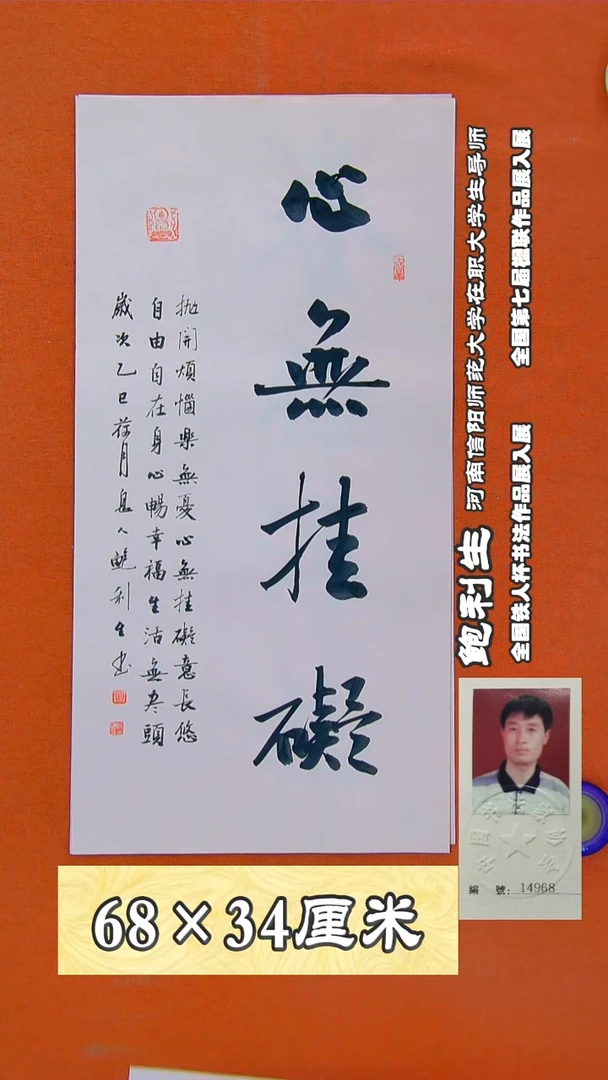 心無挂礙
抛開煩惱樂無憂心無挂礙意長悠
自由自在身心暢幸福生活無尽頭
歲次乙巳荷月息人鲍利生书
鲍利生 河南信阳师范大学在职大学生导师
全国铁人杯书法作品展入展 全国第七届楹联作品展入展
編 號: 14968
68×34厘米